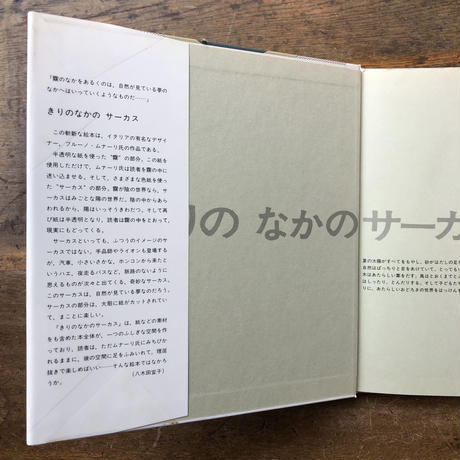 「霧のなかをあるくのは、自然が見ている夢の
なかへはいっていくようなものだ——」
きりのなかの サーカス
この斬新な絵本は、イタリアの有名なデザイ
ナー、ブルーノ・ムナーリ氏の作品である。
半透明な紙を使った“霧”の部分。この紙を
使用しただけで、ムナーリ氏は読者を霧の中に
迷い込ませる。そして、さまざまな色紙を使っ
た“サーカス”の部分。霧が陰の世界なら、サ
ーカスはみごとな陽の世界だ。陰の中からあら
われるから、陽はいっそうきわだつ。そして再
び紙は半透明となり、読者は霧の中をとおって、
現実にもどってくる。
サーカスといっても、ふつうのイメージのサ
ーカスではない。手品師やライオンも登場する
が、汽車、小さいさかな、ホンコンから来たと
いうハエ、夜走るバスなど、脈路のないように
思えるものが次々と出てくる、奇妙なサーカス。
このサーカスは、自然が見ている夢なのだろう。
サーカスの部分は、大胆に紙がカットされてい
て、まことに楽しい。
『きりのなかのサーカス』は、紙などの素材
をも含めた本全体が、一つのふしぎな空間を作
っており、読者は、ただムナーリ氏にみちびか
れるままに、彼の空間に足をふみいれて、理屈
抜きで楽しめばいい——そんな絵本ではなかろ
うか。
(八木田宜子)
りの なかのサーカ
夏の太陽がすべてをもやし、砂がはだしの足を
自然はぱっちりと目をあけていて、とってもい
木はあたらしい葉をだす。鳥はとおくまでと
はしったり、とんだりする。そして子どもた
りに、あたらしいおどろきの世界をはっけんす